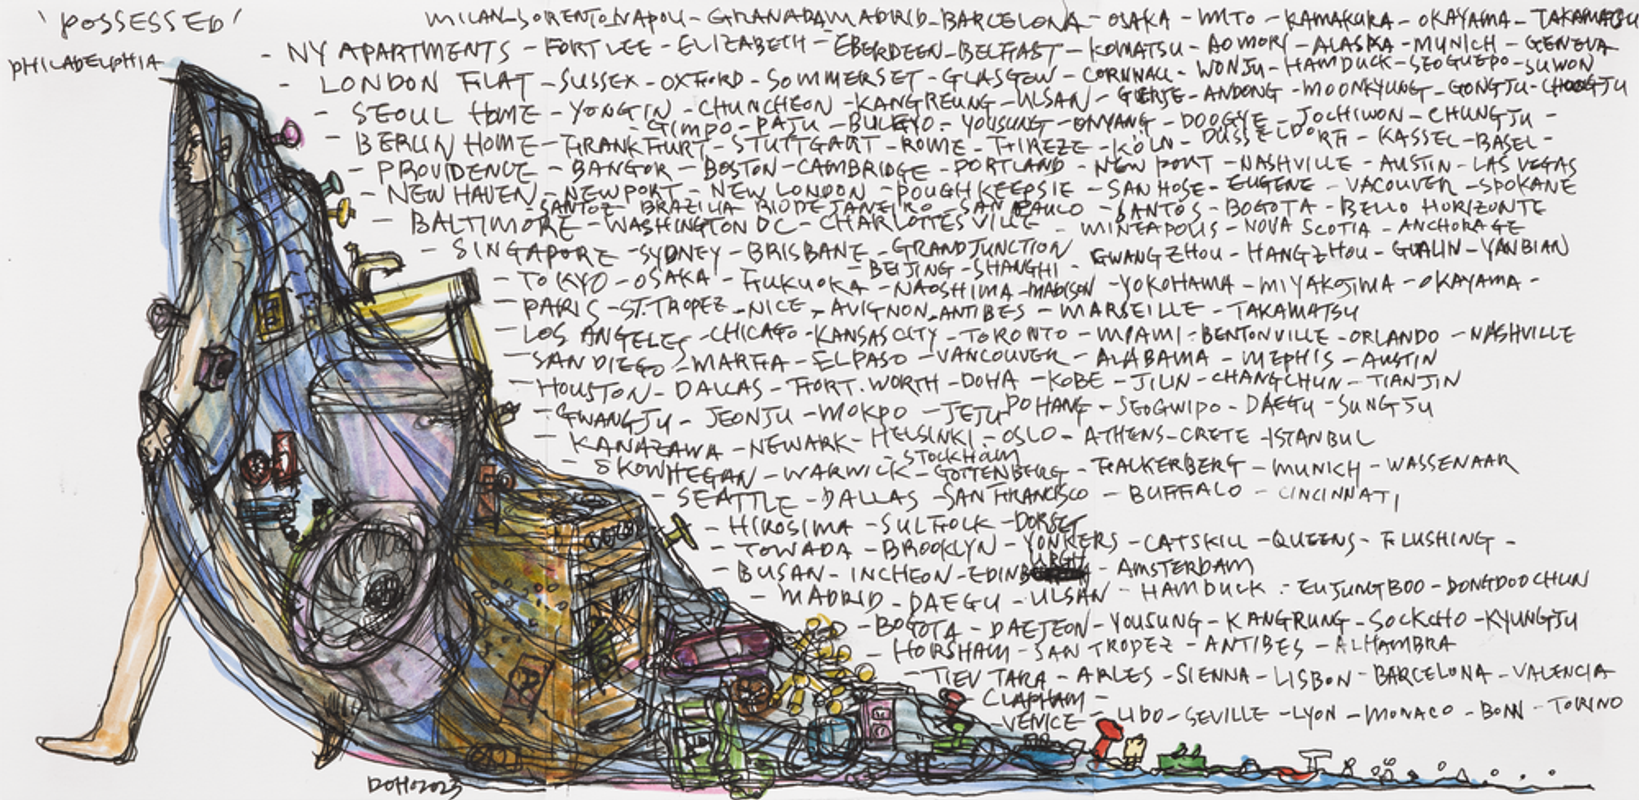 'POSSESSED'
PHILADELPHIA
MILAN-SORENTO-NAPOLI-GRANADA MADRID-BARCELONA-OSAKA-MITO-KAMAKURA-OKAYAMA-TAKAMATSU
- NY APARTMENTS - FORT LEE - ELIZABETH - EBERDEEN - BELFAST - KOMATSU - AOMORI - ALASKA - MUNICH - GENEVA
- LONDON FLAT - SUSSEX - OXFORD - SOMMERSET - GLASGEW - CORNWALL - WONJU - HAMDUCK - SEOGUEPO - SUWON
- SEOUL HOME - YONGIN - CHUNCHEON - KANGREUNG - ULSAN - GEOJE - ANDONG - MOONKYUNG - GONGJU - CHOOGJU
- GIMPO - PAJU - BULGYO - YOUSUNG - ONYANG - DOOGYE - JOCHIWON - CHUNGJU -
- BERLIN HOME - FRANKFURT - STUTTGART - ROME - FIREZE - KÖLN - DUSSELDORFF - KASSEL - BASEL -
- PROVIDENCE - BANGOR - BOSTON - CAMBRIDGE - PORTLAND - NEW PORT - NASHVILLE - AUSTIN - LAS VEGAS
- NEW HAVEN - NEWPORT - NEW LONDON - POUGHKEEPSIE - SAN HOSE - EUGENE - VACOUVER - SPOKANE
SANTOZ BRAZILIA RIO DE JANEIRO - SAN PAULO - SANTOS - BOGOTA - BELLO HORIZONTE
- BALTIMORE - WASHINGTON DC - CHARLOTTESVILLE - MINEAPOLIS - NOVA SCOTIA - ANCHORAGE
- SINGAPORE - SYDNEY - BRISBANE - GRANDJUNCTION GWANGZHOU - HANGZHOU - GUALIN - YANBIAN
- BEIJING - SHANGHI -
- TOKYO - OSAKA - FUKUOKA - NAOSHIMA - MADISON - YOKOHAMA - MIYAKOJIMA - OKAYAMA -
- PARIS - ST.TROPEZ - NICE - AVIGNON - ANTIBES - MARSEILLE - TAKAMATSU
- LOS ANGELES - CHICAGO - KANSAS CITY - TORONTO - MIAMI - BENTONVILLE - ORLANDO - NASHVILLE
- SAN DIEGO - MARFA - ELPASO - VANCOUVER - ALABAMA - MEPHIS - AUSTIN
- HOUSTON - DALLAS - FORT.WORTH - DOHA - KOBE - JILIN - CHANGCHUN - TIANJIN
- GWANGJU - JEONJU - MOKPO - JEJU POHANG - SEOGWIPO - DAEGU - SUNGJU
- KANAZAWA - NEWARK - HELSINKI - OSLO - ATHENS - CRETE - ISTANBUL
- STOCKHOLM
- SKOWHEGAN - WARWICK - GOTTENBERG - FALKERBERG - MUNICH - WASSENAAR
- SEATTLE - DALLAS - SAN FRANCISCO - BUFFALO - CINCINNATI
- HIROSIMA - SULFFOLK - DORSET
- TOWADA - BROOKLYN - YONKERS - CATSKILL - QUEENS - FLUSHING -
- BUSAN - INCHEON - EDINBURGH - AMSTERDAM
- MADRID - DAEGU - ULSAN - HAMDUCK - EUJUNGBOO - DONGDOOCHUN
- BOGOTA - DAEJEON - YOUSUNG - KANGRUNG - SOCKCHO - KYUNGJU
- HORSHAM - SAN TROPEZ - ANTIBES - ALHAMBRA
- ARLES - SIENNA - LISBON - BARCELONA - VALENCIA
- CLAPHAM -
- VENICE - LIDO - SEVILLE - LYON - MONACO - BONN - TORINO
DOHO 2023